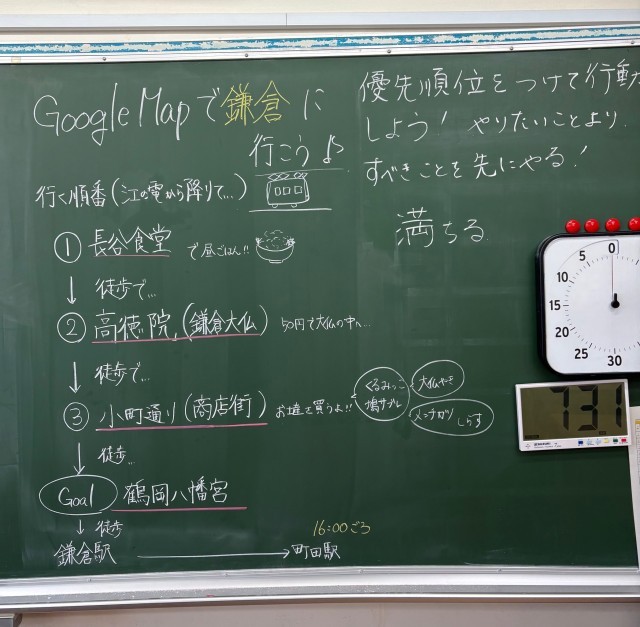 Google Mapで鎌倉に
行こう♪
行く順番(江の電から降りて...)
① 長谷食堂 で昼ごはん!!
↓ 徒歩で...
② 高徳院(鎌倉大仏) 50円で大仏の中へ...
↓ 徒歩で...
③ 小町通り(商店街) お土産買うよ!!
くるみっこ
鳩サブレ
大仏やき
メンチカツ
しらす
↓ 徒歩...
Goal 鶴岡八幡宮
↓ 徒歩
16:00ごろ
鎌倉駅 → 町田駅
優先順位をつけて行動
しよう! やりたいことより、
すべきことを先にやる!
満ちる
0
5
10
15
20
25
30
35